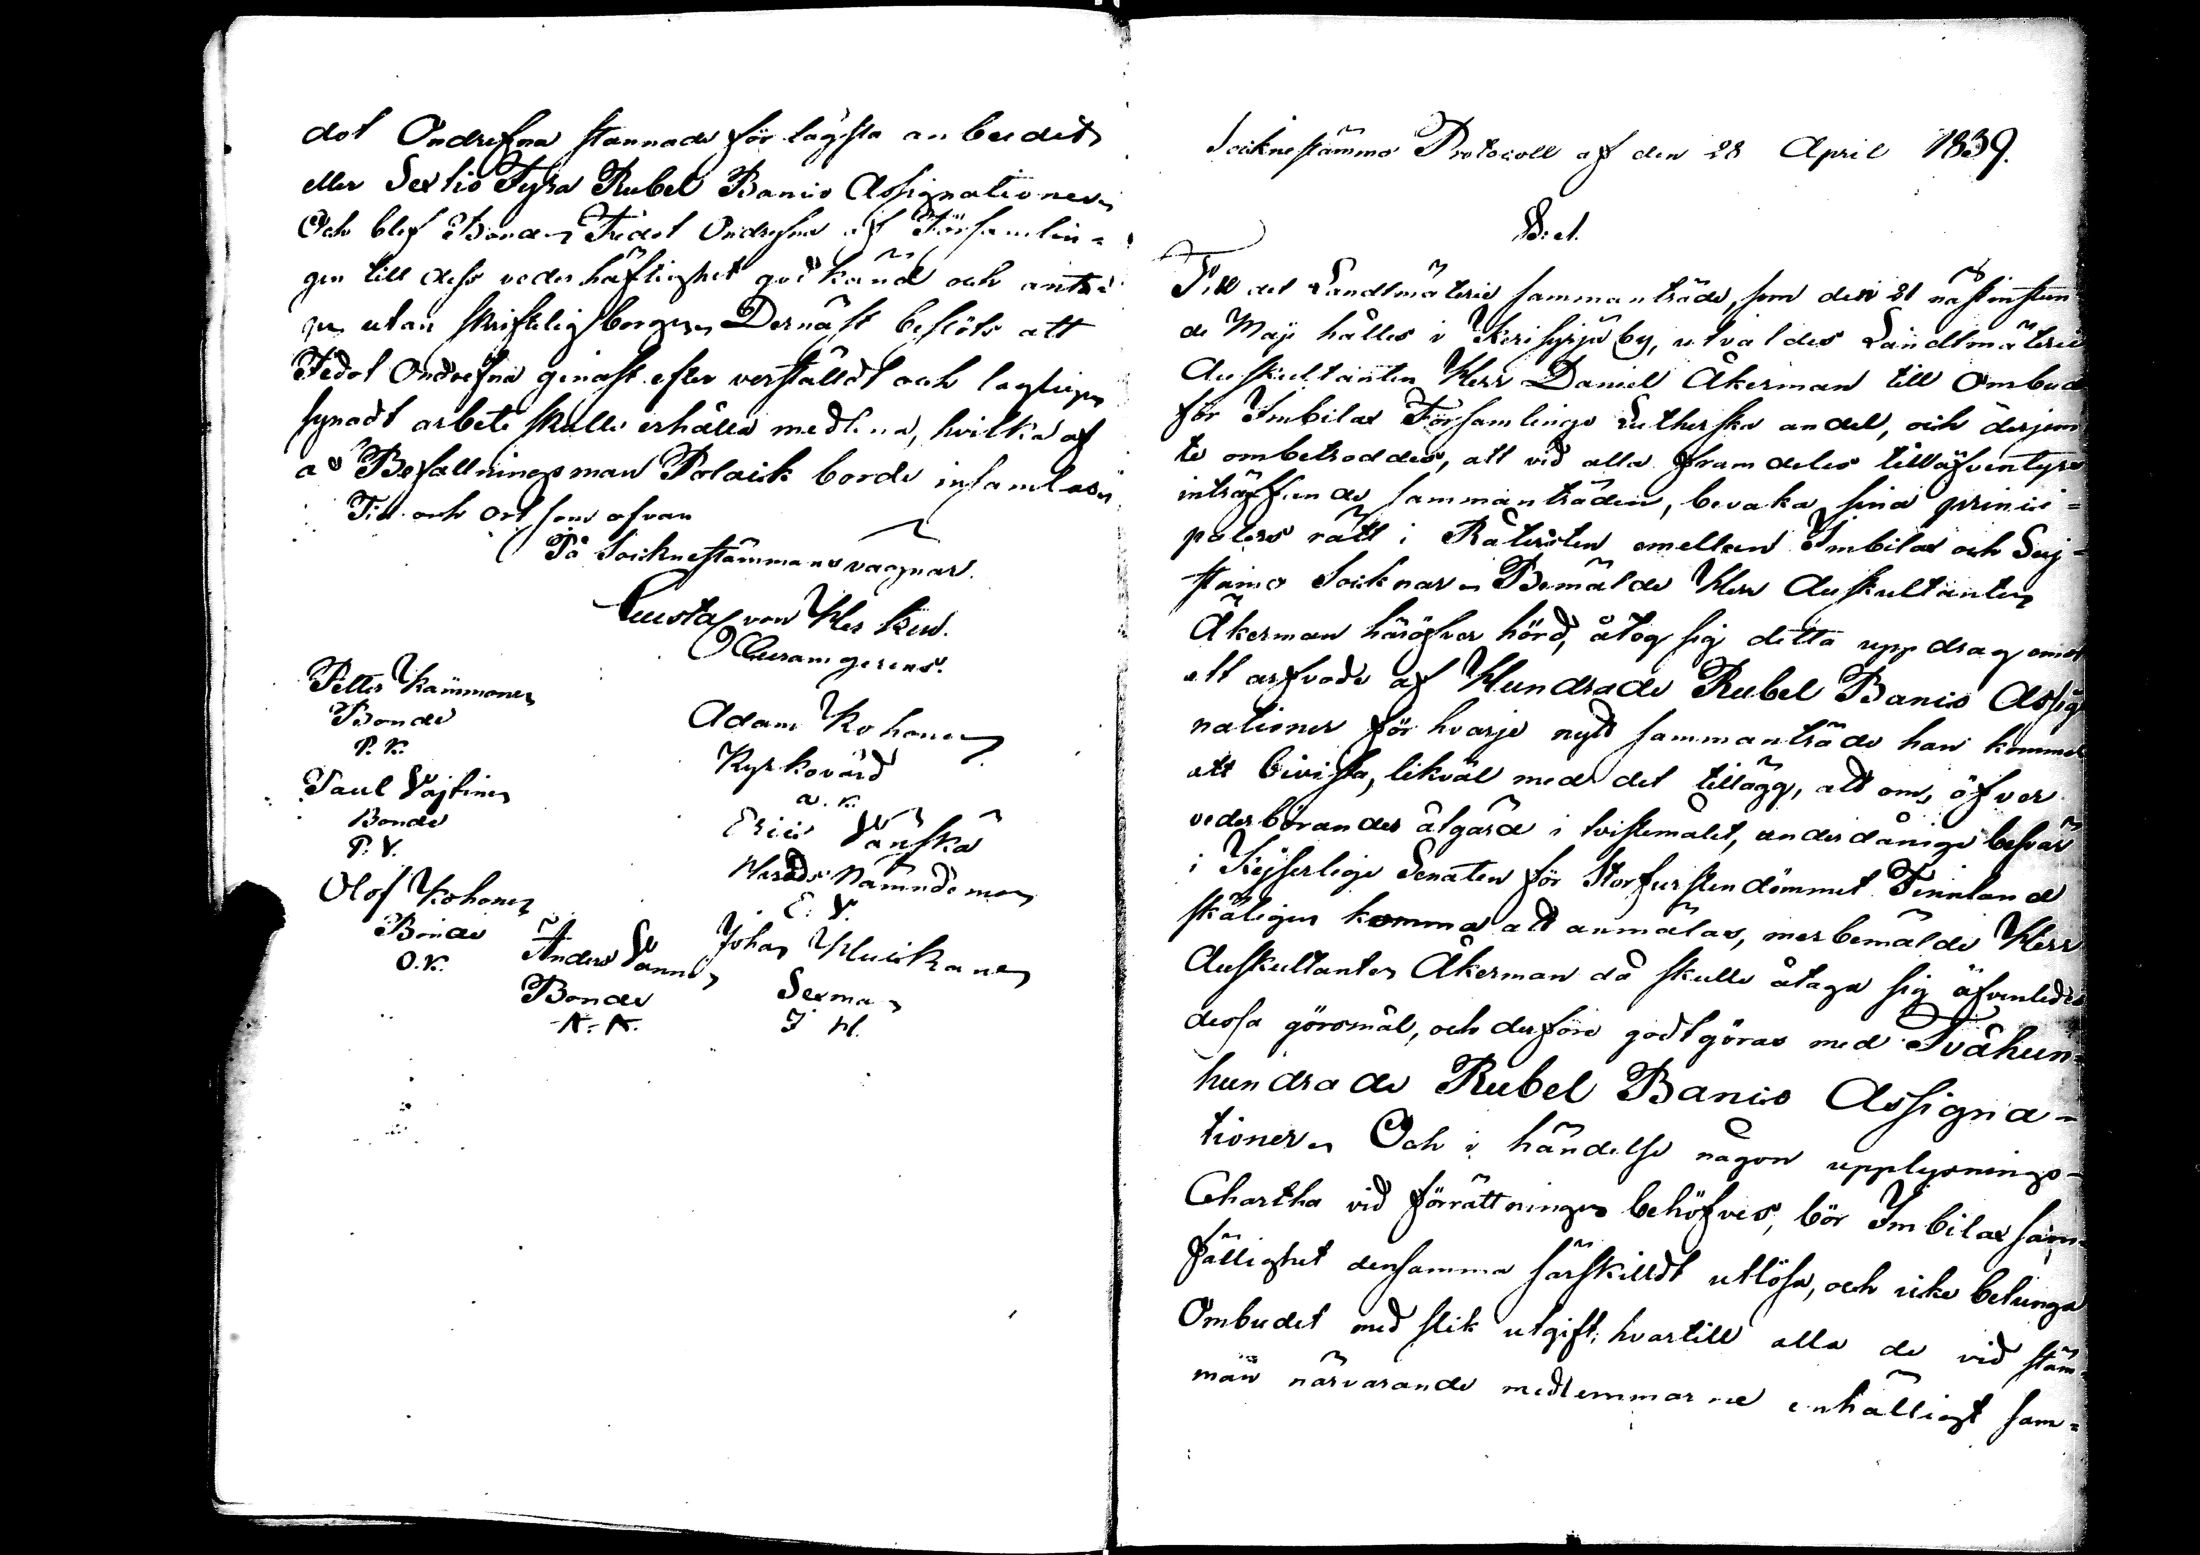 dot Ondrefna stannade för lägsta anbudet
eller Sextio Fyra Rubel Banco Assignationer
Och blef Bonden Fedot Ondrefna af Församlin=
gen till dess vederhäftighet godkänd och anta=
gen utan skriftelig borgen Dernäst beslöts att
Fedot Ondrefna genast efter verstäldt och lagligen
synadt arbete skulle erhålla medlena, hvilka af
as Befallningsman Polack borde insamlas
Tid och ort som ofvan
På Socknestämmans vägnar.
Gustaf von
Petter Kämmonen
Bonde
P. K.
Adam Kohonen
Kyrkovärd
a. K.
Paul Väjtinen
Bonde
P. V.
Eric Vänskä
Härads Nämndeman
E. V.
Olof Kohonen
Bonde
O. K.
Anders
Bonde
Johan
Sexman
J H.
Socknestämmo Protocoll af den 28 April 1839.
S. 1.
Till det Landtmäterie sammanträde, som den 21 nästinstun
de Maji hålles i Kerisyrjä by, utvaldes Landtmäterie
Auskultanten Herr Daniel Åkerman till Ombud
för Imbilax Församlings Lutherska andel, och derjem
te ombetroddes, att vid alla framdeles tilläfventyrs
inträffande sammanträden, bevaka sina princi=
palers rätt i Råtvisten emellan Imbilax och Suj=
stamo Socknar. Bemälde Herr Auskultanten
Åkerman häröfver hörd, åtog sig detta uppdrag emot
ett arfvode af Hundrade Rubel Banco Assig
nationer för hvarje nytt sammanträde han kommer
att bevista, likväl med det tillägg, att om, öfver
vederbörandes åtgärd i tvistemålet, underdånige besvär
i Kejserlige Senaten för Storfurstendömmet Finnland
skäligen komma att anmälas, merbemälde Herr
Auskultanten Åkerman då skulle åtaga sig äfvenledes
dessa göromål, och derföre godtgöras med Tvåhun=
hundrade Rubel Banco Assigna=
tioner. Och i händelse någon upplysnings=
Chartha vid förrättningen behöfves, bör Imbilax sam=
fällighet densamma särskildt utlösa, och icke betunga
Ombudet med slik utgift; hvartill alla de vid stäm=
man närvarande medlemmarne enhälligt sam=